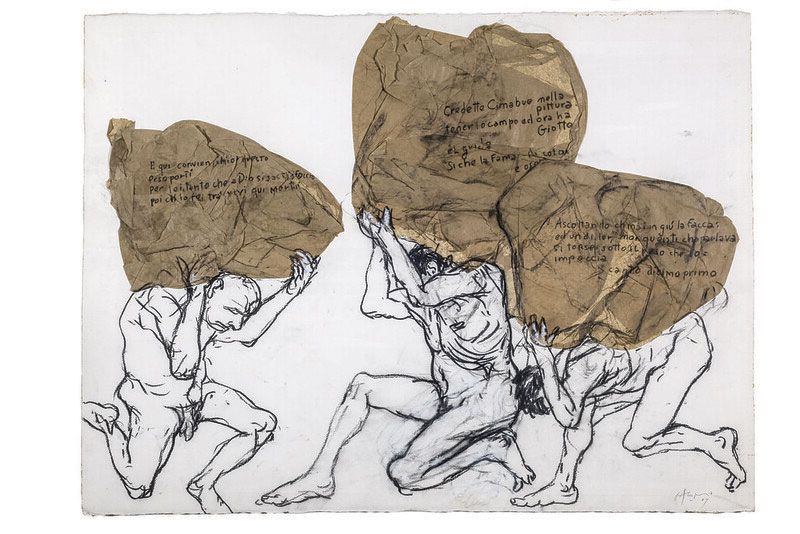 E qui convien ch'io questo
peso porti
Per lei, tanto che a Dio si
poi ch'io fei tra' vivi qui
Credette Cimabue nella
pittura
tener lo campo ed ora ha
Giotto
Si che la Fama
Ascoltando chinai in giù la Faccia;
ed un di lor non questi che parlava
si torse sotto il peso che lo
impaccia
canto dicimo primo